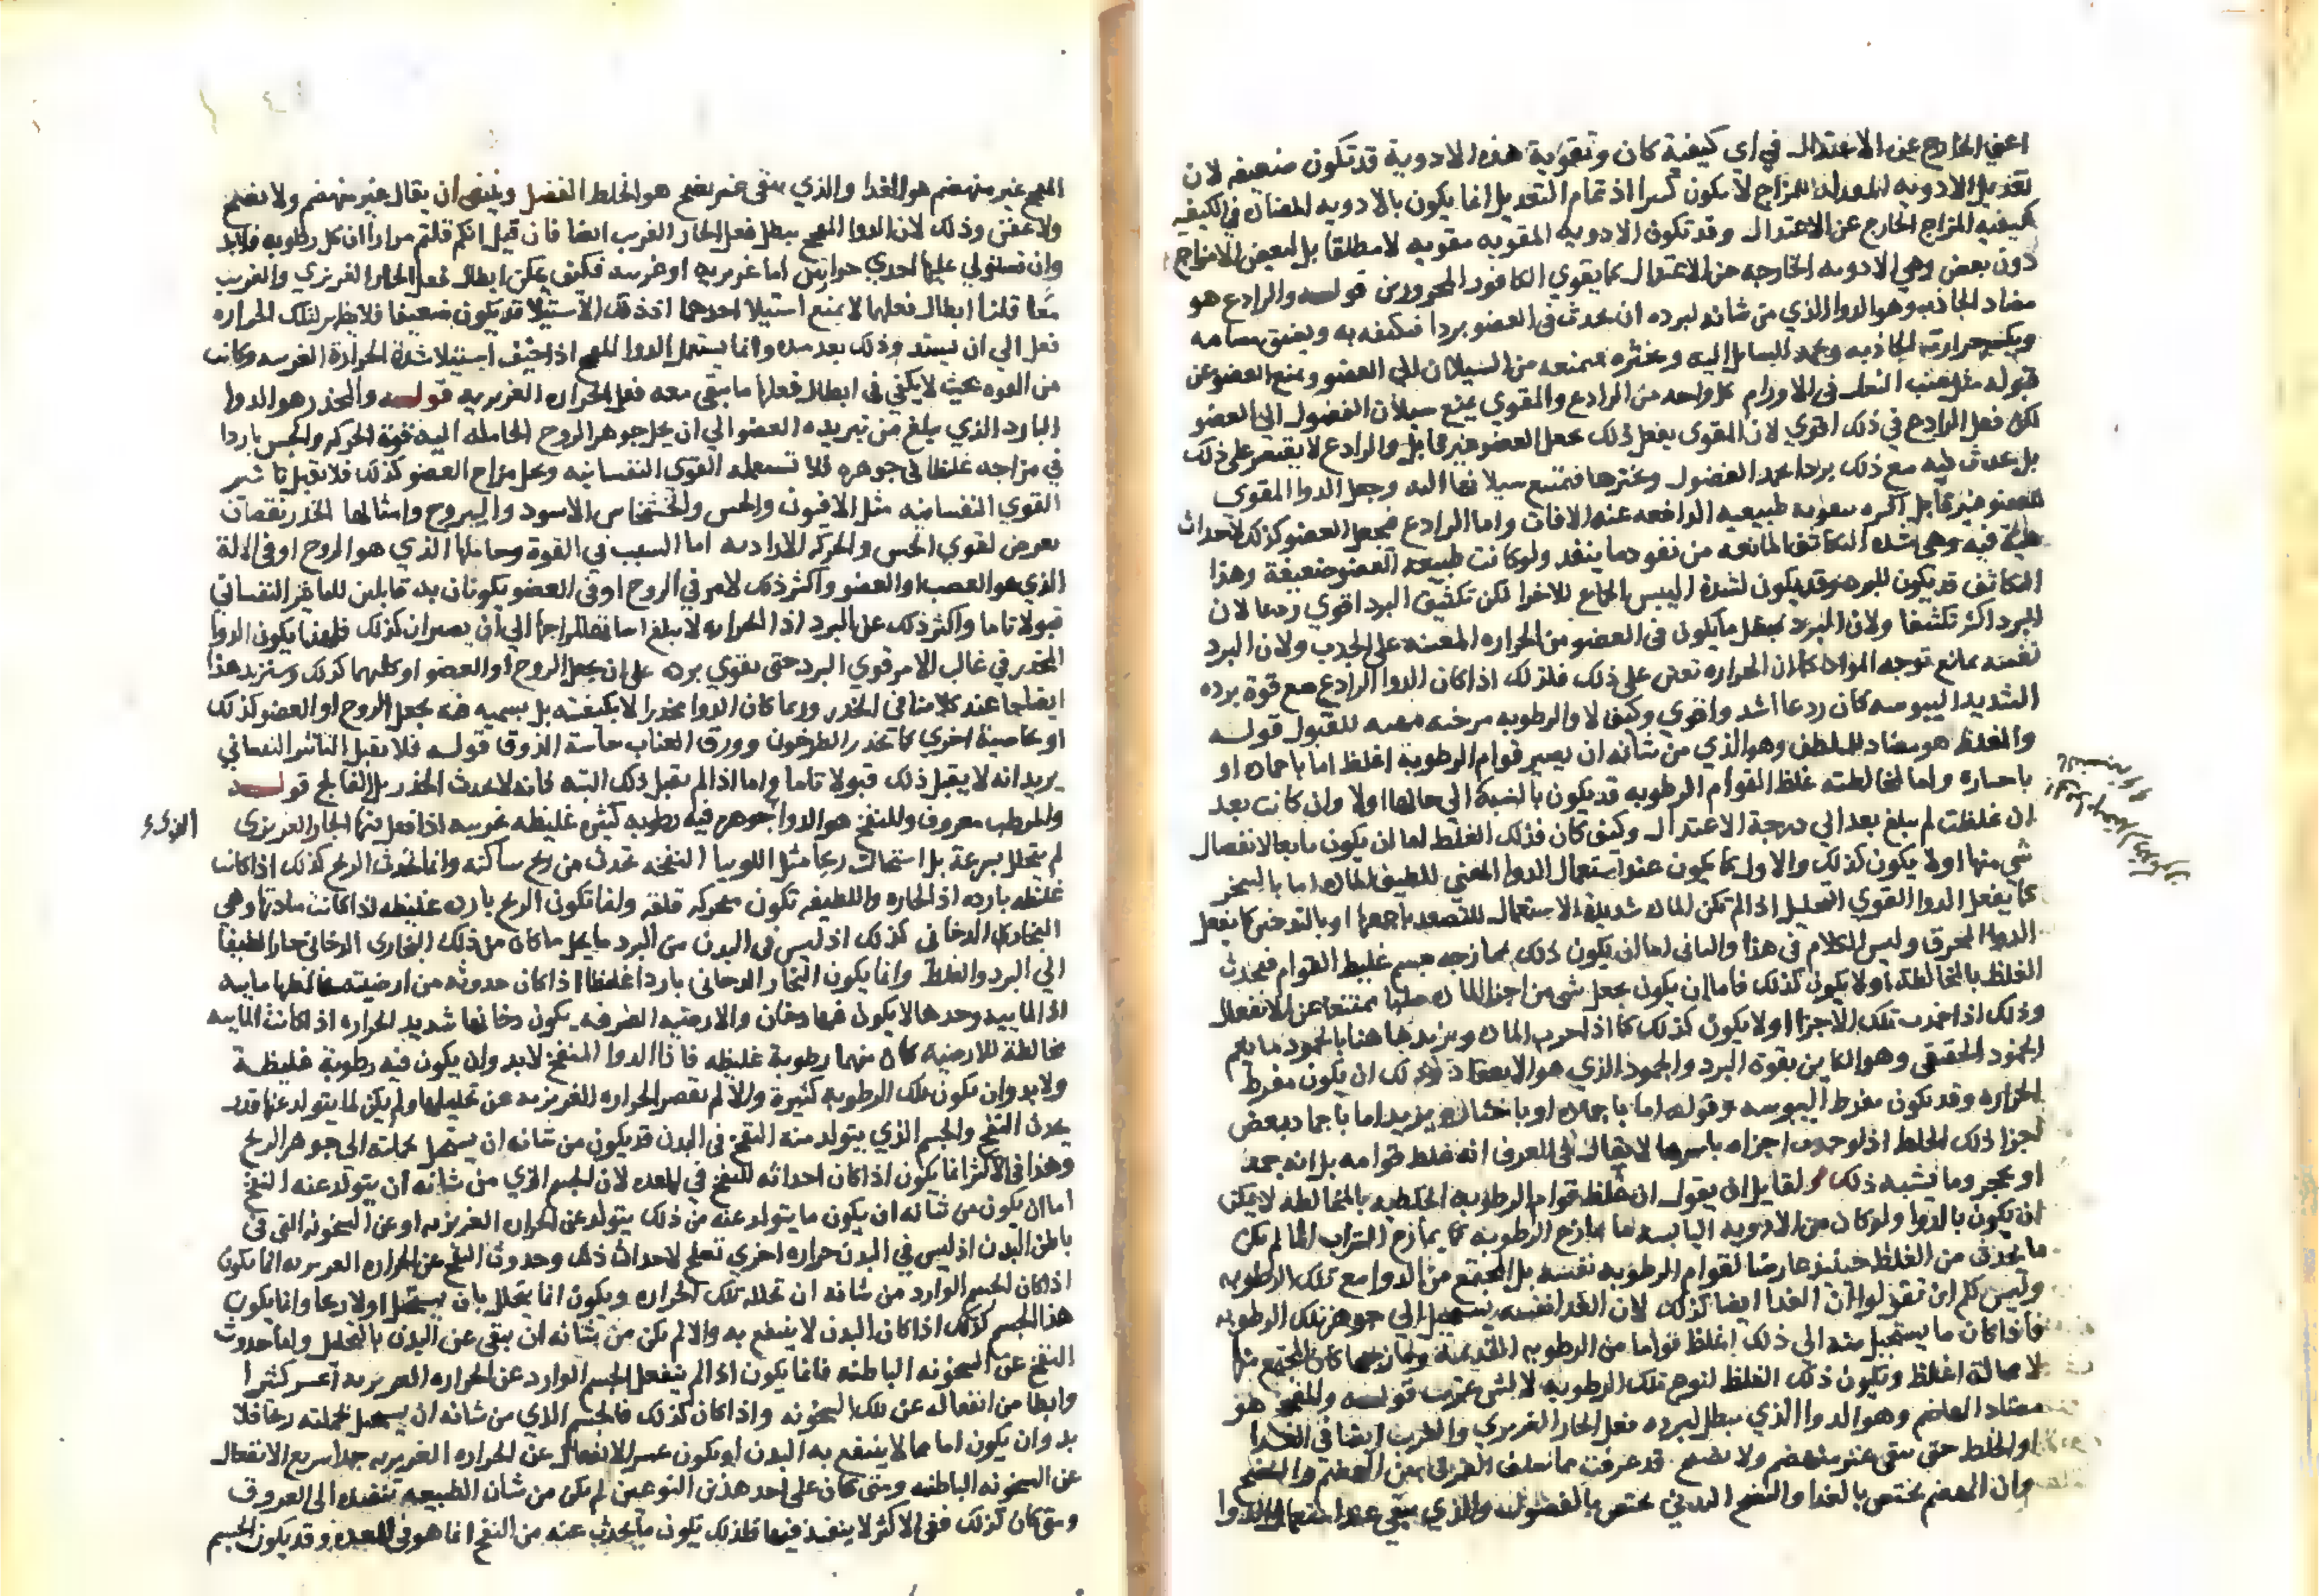 اعني الخارج عن الاعتدال في اي كيفية كان وتقوية هذه الادوية قد تكون ضعيفه لان
تعديل الادويه المعدله للمزاج لا يكون كسرا اذ تمام التعديل انما يكون بالادويه المضادة في الكيفيه
لكيفيه المزاج الخارج عن الاعتدال وقد تكون الادويه المقويه مقويه لا مطلقا بل لبعض الامزاج
دون بعض وهي الادويه الخارجه عن الاعتدال كما يقوي الكافور المحرورين قوله والرادع هو
مضاد الجاذب وهو الدوا الذي من شانه لبرده ان يحدث في العضو بردا فيكثفه به ويضيق مسامه
ويكسر حرارته الجاذبه ويجمد السايل اليه ويخثره فيمنعه من السيلان الي العضو ويمنع العضو عن
قبوله مثل عنب الثعلب في الاورام كل واحد من الرادع والمقوي يمنع سيلان الفضول الي العضو
لكن فعل الرادع في ذلك اقوي لان المقوي يفعل ذلك بجعل العضو غير قابل والرادع لا يقتصر علي ذلك
بل يحدث فيه مع ذلك بردا يجمد الفضول ويخثرها فيمتنع سيلانها اليه وجعل الدوا المقوي
للعضو غير قابل اكثره بتقويه طبيعيه الدافعه عنه الافات واما الرادع فيجعل العضو كذلك لاحداث
فيه وهي شدة التكاثف المانعه من نفود ما ينفد ولو كانت طبيعه العضو ضعيفة وهذا
التكاثف قد يكون للبرد وقد يكون لشدة اليبس الجامع للاجزا لكن تكثيف البرد اقوي ردعا لان
البرد اكثر تكثيفا ولان البرد يبطل ما يكون في العضو من الحراره المعينه علي الجدب ولان البرد
نفسه يمانع توجه المواد كما ان الحراره تعين علي ذلك فلذلك اذا كان الدوا الرادع مع قوة برده
الشديد اليبوسه كان ردعا اشد واقوي وكيف لا والرطوبه مرخيه معينه للقبول قوله
والمغلظ هو مضاد للملطف وهو الذي من شانه ان يصير قوام الرطوبة اغلظ اما باجماده او
باخثاره واما لمخالطته غلظ القوام الرطوبه قد يكون بالنسبة الي حالها اولا وان كانت بعد
ان غلظت لم يبلغ بعد الي درجة الاعتدال وكيف كان فذلك الغلظ اما ان يكون تابعا لانفصال
شي منها اولا يكون كذلك والاول كما يكون عند استعمال الدوا المفني للطيف المادة اما بالتبخر
كما يفعل الدوا القوي التحليل اذا لم تكن المادة شديدة الاستعمال للتصعد باجمعها او بالتدخين كما يفعل
الدوا المحرق وليس الكلام في هذا والثاني اما ان يكون ذلك بممازجه جسم غليظ القوام فيحدث
الغلظ بالمخالطة اولا يكون كذلك فاما ان يكون بجعل شي من اجزا المادة صلبا ممتنعا عن الانفعال
وذلك اذا اجمدت تلك الاجزا اولا يكون كذلك كما اذا المادة ونريد هاهنا بالجمود ما يعم
الجمود الحقيقي وهو الكاين بقوة البرد والجمود الذي هو الانعقاد وذلك ان يكون مفرط
الحراره وقد يكون مفرط اليبوسه وقوله اما باجماده او باخثاره يريد اما باجماد بعض
اجزا ذلك الخلط اذ لو اجزاه باسرها لا يقال في المعرف انه غلظ قوامه بل انه جمد
او تحجر وما شبه ذلك ولقايل ان يقول ان غلظ قوام الرطوبه الخلطيه بالمخالطه لا يمكن
ان يكون بالدوا ولو كان من الادويه اليابسه مما يمازج الرطوبه كما يمازج التراب الما لم يكن
ما يحدث من الغلظ حينئذ عارضا لقوام الرطوبه نفسه بل المجتمع من الدوا مع تلك الرطوبه
وليس لكم ان تقولوا ان الغدا ايضا كذلك لان الغدا نفسه يستحيل الي جوهر تلك الرطوبه
فاذا كان ما يستحيل منه الي ذلك اغلظ قواما من الرطوبه القديمة ومازجها كان المجتمع منها
لا محاله اغلظ ويكون ذلك الغلظ لنوع تلك الرطوبه لا لشي غريب قوله والمفجج هو
مضاد الهاضم وهو الدوا الذي يبطل لبرده فعل الحار الغريزي والغريب ايضا في الغدا
او الخلط حتي يبقي غير منهضم ولا نضيج قد عرفت مما سلف الفرق بين الهضم والنضج
وان الهضم يختص بالغدا والنضج البدني يختص بالفضول والذي يبقي عند استعمال الدوا
المفجج غير منهضم هو الغدا والذي يبقي غير نضيج هو الخلط الفضل وينبغي ان يقال غير منهضم ولا نضيج
ولا عفن وذلك لان الدوا المفجج يبطل فعل الحار الغريب ايضا فان قيل انكم قلتم مرارا ان كل رطوبه فلابد
وان تستولي عليها احدي حرارتين اما غريزيه او غريبه فكيف يمكن ابطال فعل الحار الغريزي والغريب
معا قلنا ابطال فعلهما لا يمنع استيلا احدهما اذ ذلك الاستيلا قد يكون ضعيفا فلا يظهر لتلك الحراره
فعل الي ان يشتد وذلك بعد مده وانما يستعمل الدوا المفجج اذا خيف استيلا شدة الحرارة الغريبه وكانت
من القوه بحيث لا يكفي في ابطال فعلها ما يبقي معه فعل الحراره الغريزيه قوله والمخدر هو الدوا
البارد الذي يبلغ من تبريده العضو الي ان يحيل جوهر الروح الحامله اليه قوة الحركه والحس باردا
في مزاجه غلظا في جوهره فلا تستعمله القوي النفسانيه ويحيل مزاج العضو كذلك فلا يقبل تاثير
القوي النفسانيه مثل الافيون والخس والخشخاش الاسود واليبروح وامثالها الخدر نقصان
يعرض لقوي الحس والحركه الاراديه اما السبب في القوة وحاملها الذي هو الروح او في الالة
الذي هو العصب او العضو واكثر ذلك لامر في الروح او في العضو يكونان به قابلين للتاثير النفساني
قبولا تاما واكثر ذلك عن البرد اذ الحراره لا يبلغ اخراجها الي ان يصيران كذلك فلهذا يكون الدوا
المخدر في غالب الامر قوي البرد حتي يقوي برده علي ان يجعل الروح او العضو او كليهما كذلك وسنزيد هذا
ايضاحا عند كلامنا في الخدر وربما كان الدوا مخدرا لا بكيفيته بل بسميه فيه تجعل الروح او العضو كذلك
او بخاصية اخري كما يخدر الطرخون وورق العناب حاسة الذوق قوله فلا يقبل التاثير النفساني
يريد انه لا يقبل ذلك قبولا تاما واما اذا لم يقبل ذلك البته فانه لا يحدث الخدر بل الفالج قوله
والمرطب معروف والمنفخ هو الدوا جوهره فيه رطوبه كثيره غليظه غريبه اذا فعل فيها الحار الغريزي
لم يتحلل بسرعة بل استحالت ريحا مثل اللوبيا النفخه تحدث من ريح ساكنه وانما تحدث الريح كذلك اذا كانت
غليظه بارده اذ الحاره واللطيفه تكون متحركه قلقه وانما تكون الريح بارده غليظه اذا كانت مادتها وهي
البخار الدخاني كذلك اذ ليس في البدن من البرد ما يحيل ما كان من ذلك البخاري الدخاني حارا لطيفا
الي البرد والغلظ وانما يكون البخار الدخاني باردا غليظا اذا كان حدوثه من ارضيته مخالطها مايه
اذ الماييه وحدها لا يكون فيها دخان والارضيه الصرفه يكون دخانها شديد الحراره اذا كانت الماييه
مخالطة للارضيه كان منهما رطوبة غليظه فاذا الدوا المنفخ لابد وان يكون فيه رطوبة غليظة
ولابد وان يكون تلك الرطوبه كثيرة والا لم تقصر الحراره الغريزيه عن تحليلها ولم يكن لما يتولد عنها قدر
يحدث النفخ والجسم الذي يتولد منه النفخ في البدن قد يكون من شانه ان يستحيل بجملته الي جوهر الريح
وهذا في الاكثر انما يكون اذا كان احداثه للنفخ في المعده لان الجسم الذي من شانه ان يتولد عنه النفخ
اما ان يكون من شانه ان يكون ما يتولد عنه من ذلك يتولد عن الحراره الغريزيه او عن السخونه التي في
باطن البدن اذ ليس في البدن حراره اخري تصلح لاحداث ذلك وحدوث النفخ عن الحراره الغريزيه انما يكون
اذا كان الجسم الوارد من شانه ان تحلله تلك الحراره ويكون انما يتحلل بان يستحيل اولا ريحا وانما يكون
هذا الجسم كذلك اذا كان البدن لا ينتفع به والا لم يكن من شانه ان يبقي عن البدن بالتحليل واما حدوث
النفخ عن السخونه الباطنه فانما يكون اذا لم ينفعل الجسم الوارد عن الحراره الغريزيه اعسر كثيرا
وابطا من انفعاله عن تلك السخونه واذا كان كذلك فالجسم الذي من شانه ان يستحيل بجملته ريحا فلا
بد وان يكون اما مما لا ينتفع به البدن او يكون عسر الانفعال عن الحراره الغريزيه جدا سريع الانفعال
عن السخونه الباطنه ومتي كان علي احد هذين النوعين لم يكن من شان الطبيعه تنفيذه الي العروق
ومتي كان كذلك ففي الاكثر لا ينفذ فيها فلذلك يكون ما يحدث عنه من النفخ انما هو في المعده وقد يكون الجسم